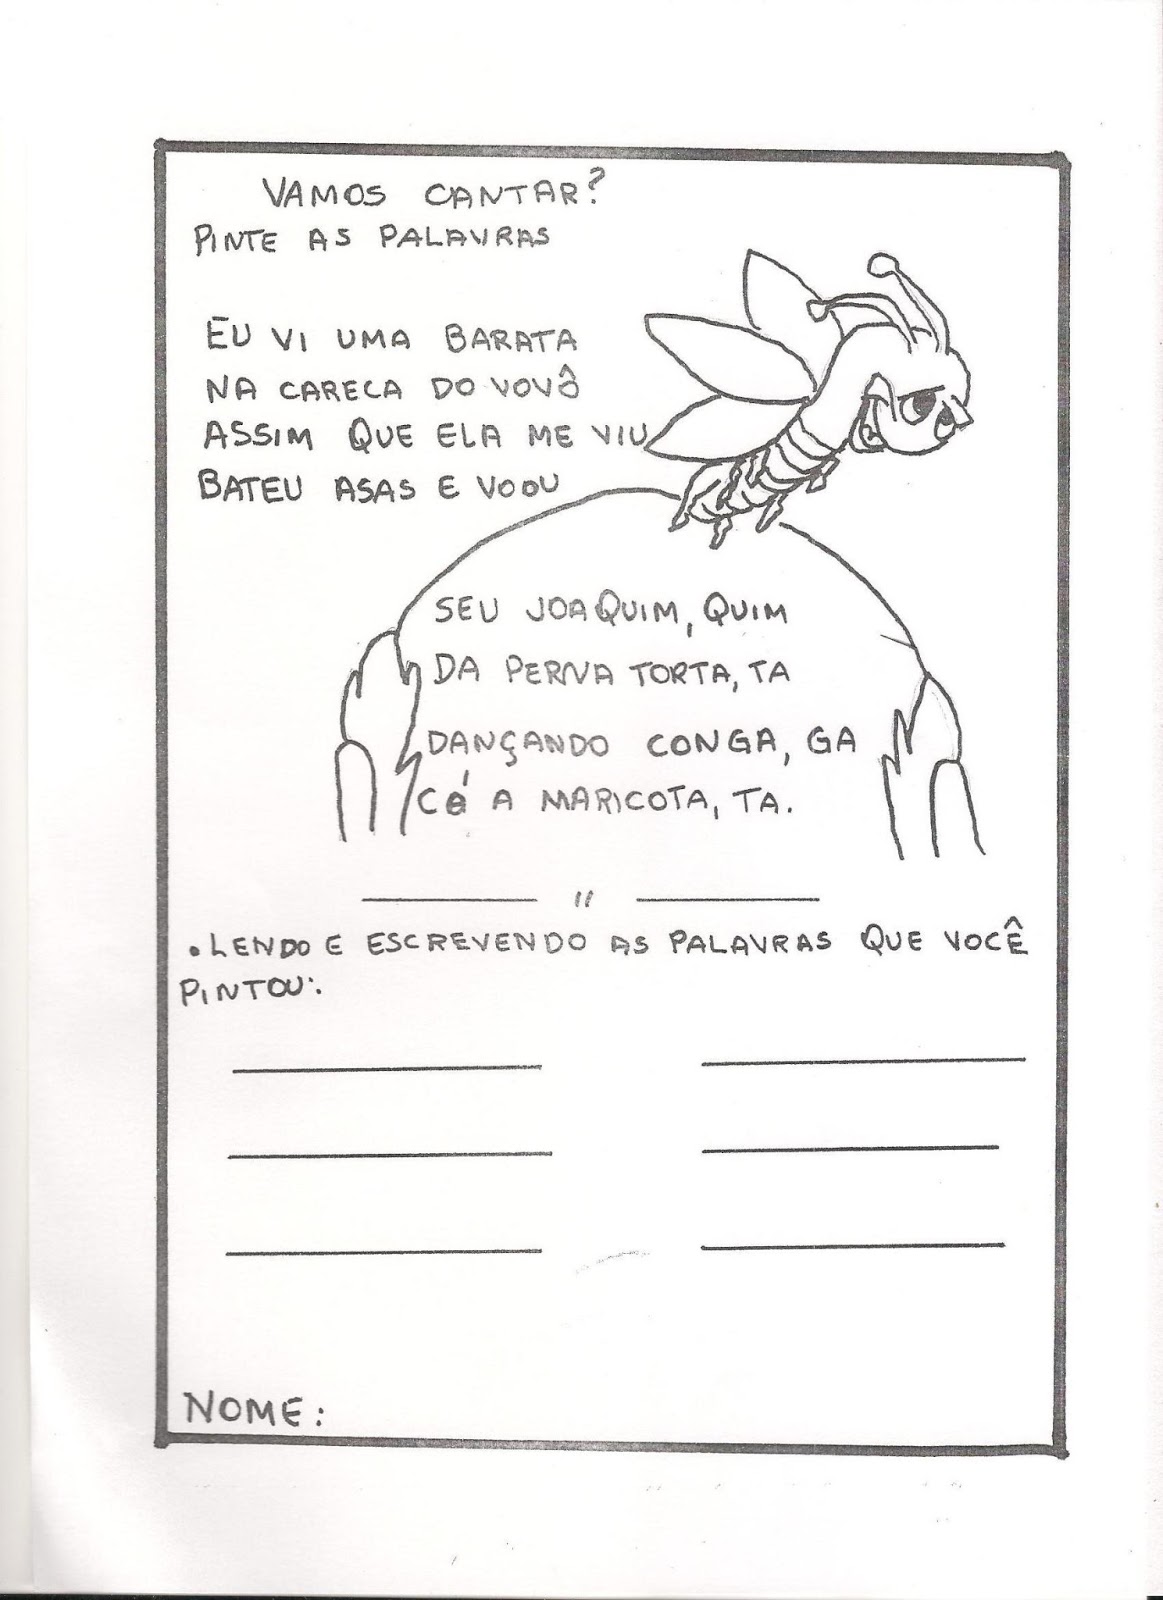 VAMOS CANTAR?
PINTE AS PALAVRAS
EU VI UMA BARATA
NA CARECA DO VOVÔ
ASSIM QUE ELA ME VIU
BATEU ASAS E VOOU
SEU JOAQUIM, QUIM
DA PERNA TORTA, TA
DANÇANDO CONGA, GA
CÓ A MARICOTA, TA.
"
• LENDO E ESCREVENDO AS PALAVRAS QUE VOCÊ
PINTOU:
NOME: